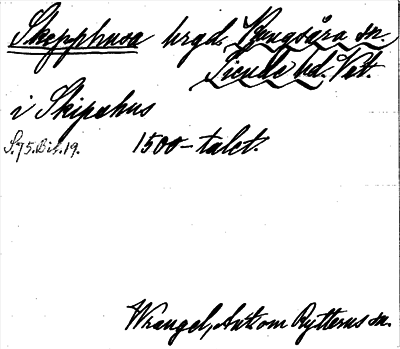 Skepphusa hrgd. Kungsåra sn.
Siende hd. Vstm.
i Skipahus
S. 75. Bil. 19. 1500-talet.
Wrangel, Ant. om Rytterns sn.